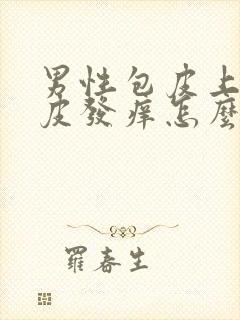 男性包皮上
皮發痒怎麼
羅春生